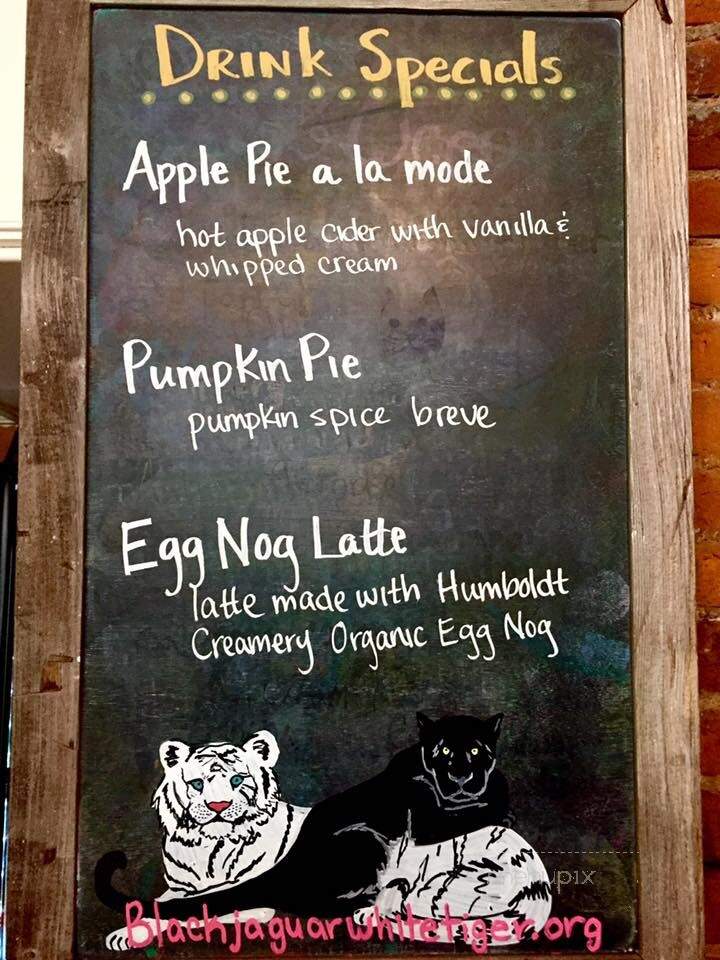 Drink Specials
Apple Pie a la mode
hot apple cider with vanilla &
whipped cream
Pumpkin Pie
pumpkin spice breve
Egg Nog Latte
latte made with Humboldt
Creamery Organic Egg Nog
Blackjaguarwhitetiger.org